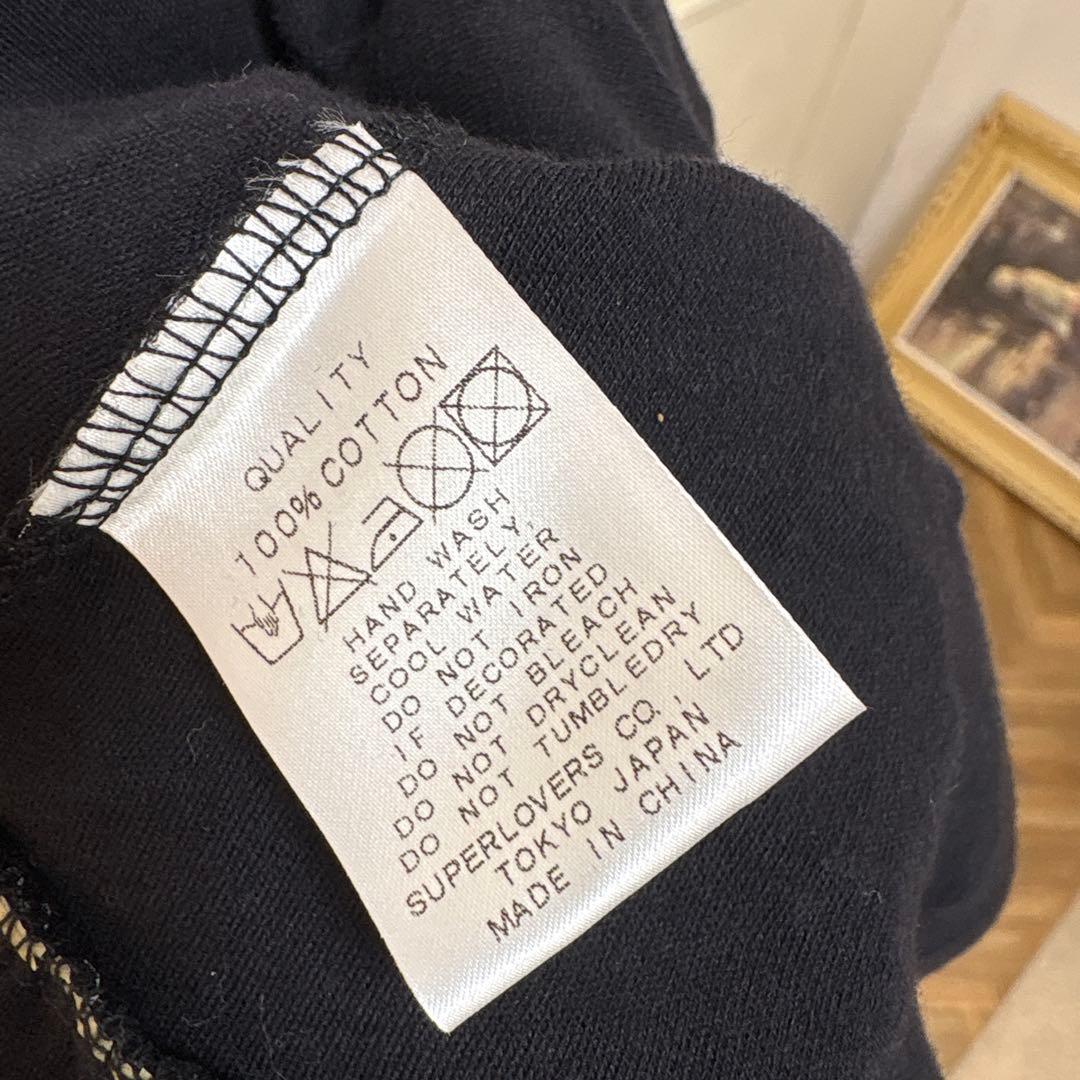 QUALITY
100% COTTON
HAND WASH
SEPARATELY,
COOL WATER
DO NOT IRON
IF DECORATED
DO NOT BLEACH
DO NOT DRYCLEAN
DO NOT TUMBLEDRY
SUPERLOVERS CO., LTD
TOKYO JAPAN
MADE IN CHINA